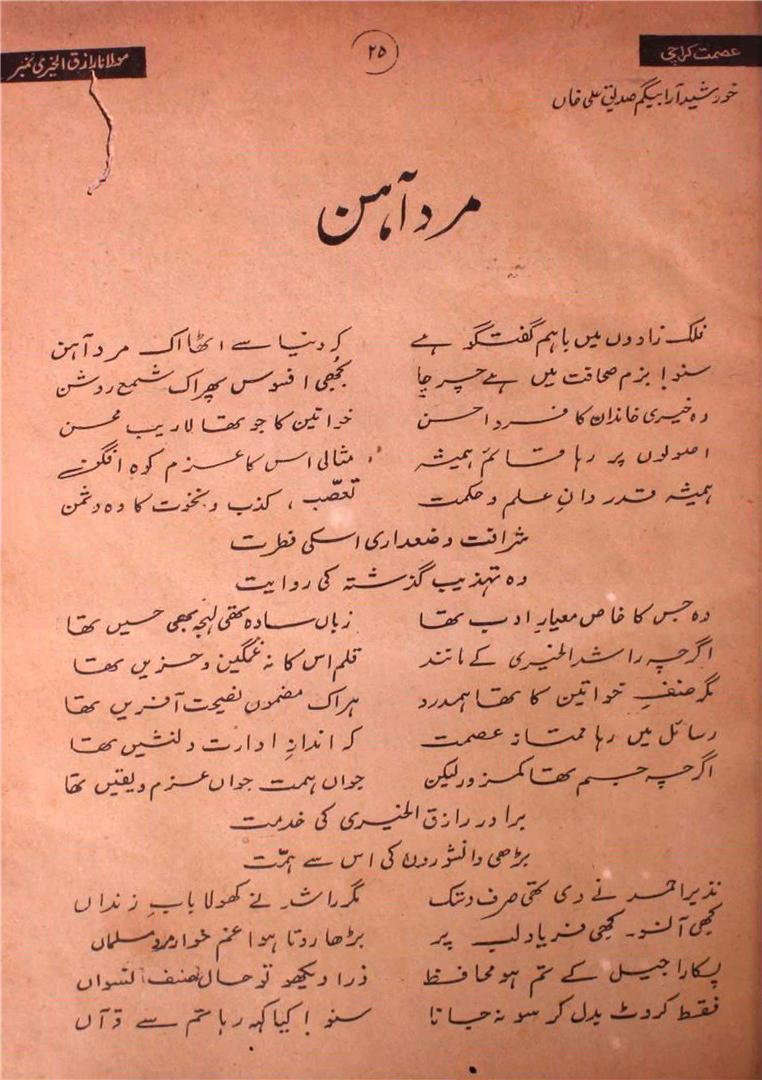 عصمت کراچی
۲۵
مولانا رازق الخیری نمبر
خورشید آرا بیگم صدیق علی خاں
مرد آہن
فلک زادوں میں باہم گفتگو ہے کہ دنیا سے اٹھا اک مرد آہن
سنو! بزم صحافت میں ہے چرچا بجھی افسوس پھر اک شمع روشن
وہ خیری خاندان کا فرد احسن خواتین کا جو تھا لاریب محسن
اصولوں پر رہا قائم ہمیشہ مثالی اس کا عزم کوہ افگن
ہمیشہ قدر دانِ علم و حکمت تعصّب، کذب و نخوت کا وہ دشمن
شرافت وضعداری اسکی فطرت
وہ تہذیب گذشتہ کی روایت
وہ جس کا خاص معیارِ ادب تھا زباں سادہ تھی لہجہ بھی حسیں تھا
اگرچہ راشد الخیری کے مانند قلم اس کا نہ غمگین و حزیں تھا
مگر صنفِ خواتین کا تھا ہمدرد ہر اک مضموں نصیحت آفریں تھا
رسائل میں رہا ممتاز عصمت کہ اندازِ ادارت دلنشیں تھا
اگرچہ جسم تھا کمزور لیکن جواں ہمت جواں عزم و یقیں تھا
برادر رازق الخیری کی خدمت
بڑھی دانشوروں کی اس سے ہمّت
نذیر احمد نے دی تھی صرف دستک مگر راشد نے کھولا بابِ زنداں
کبھی آنسو۔ کبھی فریاد لب پر بڑھا روتا ہوا غم خوار مرد مسلماں
پکارا جیل کے تم ہو محافظ ذرا دیکھو تو حال صنف النسواں
فقط کروٹ بدل کر سو نہ جانا سنو! کیا کہہ رہا تم سے قرآں